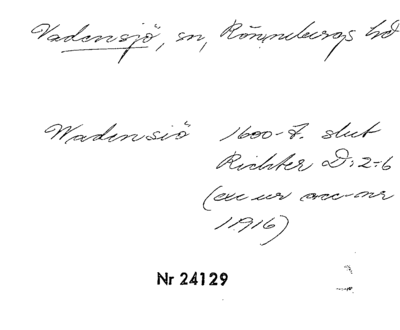 Vadensjö, sn, Rönnebergs hd
Wadensiö 1600-t. slut
Richter D:2-6
(ex ur acc-nr
1916)
Nr 24129